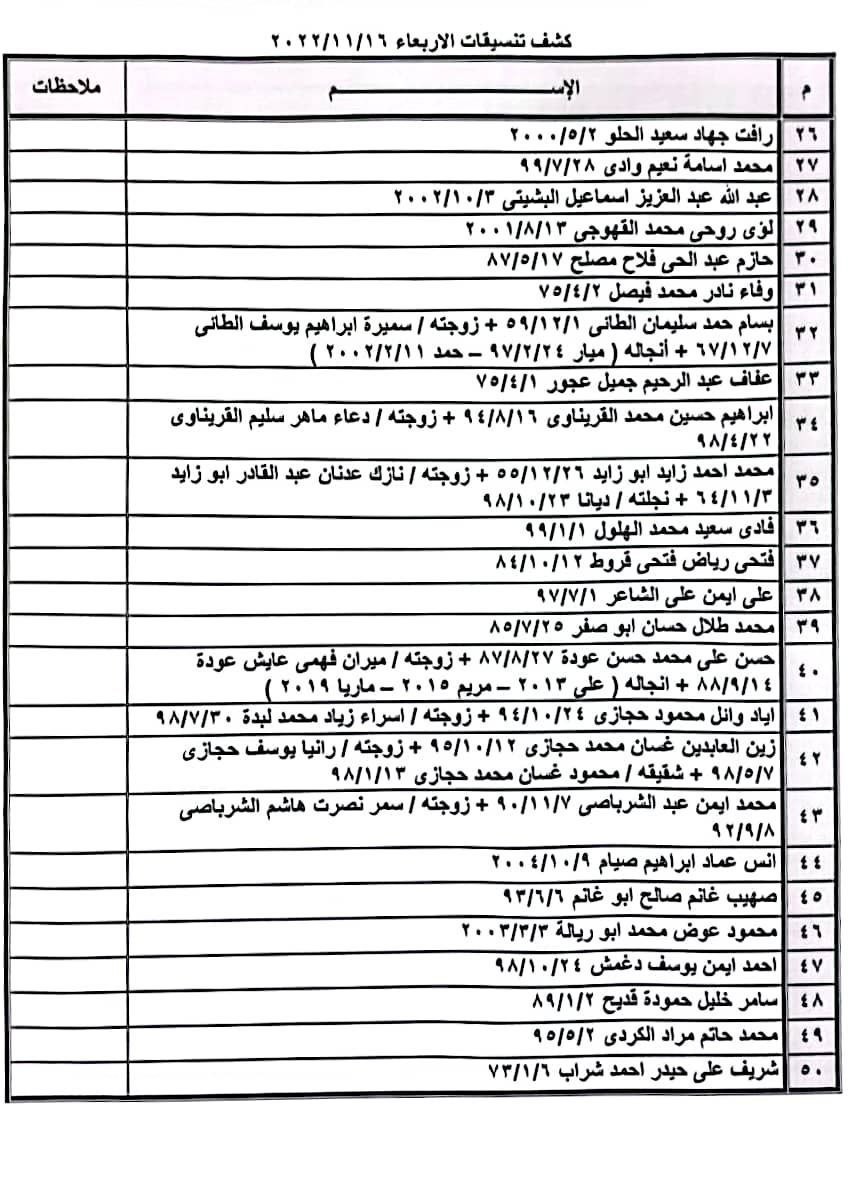 كشف تنسيقات الاربعاء ٢٠٢٢/١١/١٦
م الإســـــــــــم ملاحظات
٢٦ رافت جهاد سعيد الحلو ٢٠٠٠/٥/٢
٢٧ محمد اسامة نعيم وادى ٩٩/٧/٢٨
٢٨ عبد الله عبد العزيز اسماعيل البشيتى ٢٠٠٢/١٠/٣
٢٩ لؤى روحى محمد القهوجي ٢٠٠١/٨/١٣
٣٠ حازم عبد الحى فلاح مصلح ٨٧/٥/١٧
٣١ وفاء نادر محمد فيصل ٧٥/٤/٢
٣٢ بسام حمد سليمان الطائى ٥٩/١٢/١ + زوجته / سميرة ابراهيم يوسف الطائى
٦٧/١٢/٧ + أنجاله ( ميار ٩٧/٢/٢٤ – حمد ٢٠٠٢/٢/١١ )
٣٣ عفاف عبد الرحيم جميل عجور ٧٥/٤/١
٣٤ ابراهيم حسين محمد القريناوى ٩٤/٨/١٦ + زوجته / دعاء ماهر سليم القريناوى
٩٨/٤/٢٢
٣٥ محمد احمد زايد ابو زايد ٥٥/١٢/٢٦ + زوجته / نازك عدنان عبد القادر ابو زايد
٦٤/١١/٣ + نجلته / ديانا ٩٨/١٠/٢٣
٣٦ فادى سعيد محمد الهلول ٩٩/١/١
٣٧ فتحى رياض فتحى قروط ٨٤/١٠/١٢
٣٨ على ايمن على الشاعر ٩٧/٧/١
٣٩ محمد طلال حسان ابو صفر ٨٥/٧/٢٥
٤٠ حسن على محمد حسن عودة ٨٧/٨/٢٧ + زوجته / ميران فهمى عايش عودة
٨٨/٩/١٤ + انجاله ( على ٢٠١٣ – مريم ٢٠١٥ – ماريا ٢٠١٩ )
٤١ اياد وائل محمود حجازى ٩٤/١٠/٢٤ + زوجته / اسراء زياد محمد لبدة ٩٨/٧/٣٠
٤٢ زين العابدين غسان محمد حجازى ٩٥/١٠/١٢ + زوجته / رانيا يوسف حجازى
٩٨/٥/٧ + شقيقه / محمود غسان محمد حجازى ٩٨/١/١٣
٤٣ محمد ايمن عبد الشرباصى ٩٠/١١/٧ + زوجته / سمر نصرت هاشم الشرباصى
٩٢/٩/٨
٤٤ انس عماد ابراهيم صيام ٢٠٠٤/١٠/٩
٤٥ صهيب غانم صالح ابو غانم ٩٣/٦/٦
٤٦ محمود عوض محمد ابو ريالة ٢٠٠٣/٣/٣
٤٧ احمد ايمن يوسف دغمش ٩٨/١٠/٢٤
٤٨ سامر خليل حمودة قديح ٨٩/١/٢
٤٩ محمد حاتم مراد الكردى ٩٥/٥/٢
٥٠ شريف على حيدر احمد شراب ٧٣/١/٦